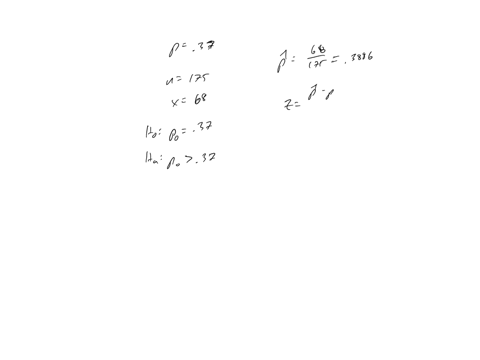 p = .37
n = 175
x = 68
H₀: p₀ = .37
Hₐ: p₀ > .37
p̂ = 68/175 = .3886
z = p̂ - p